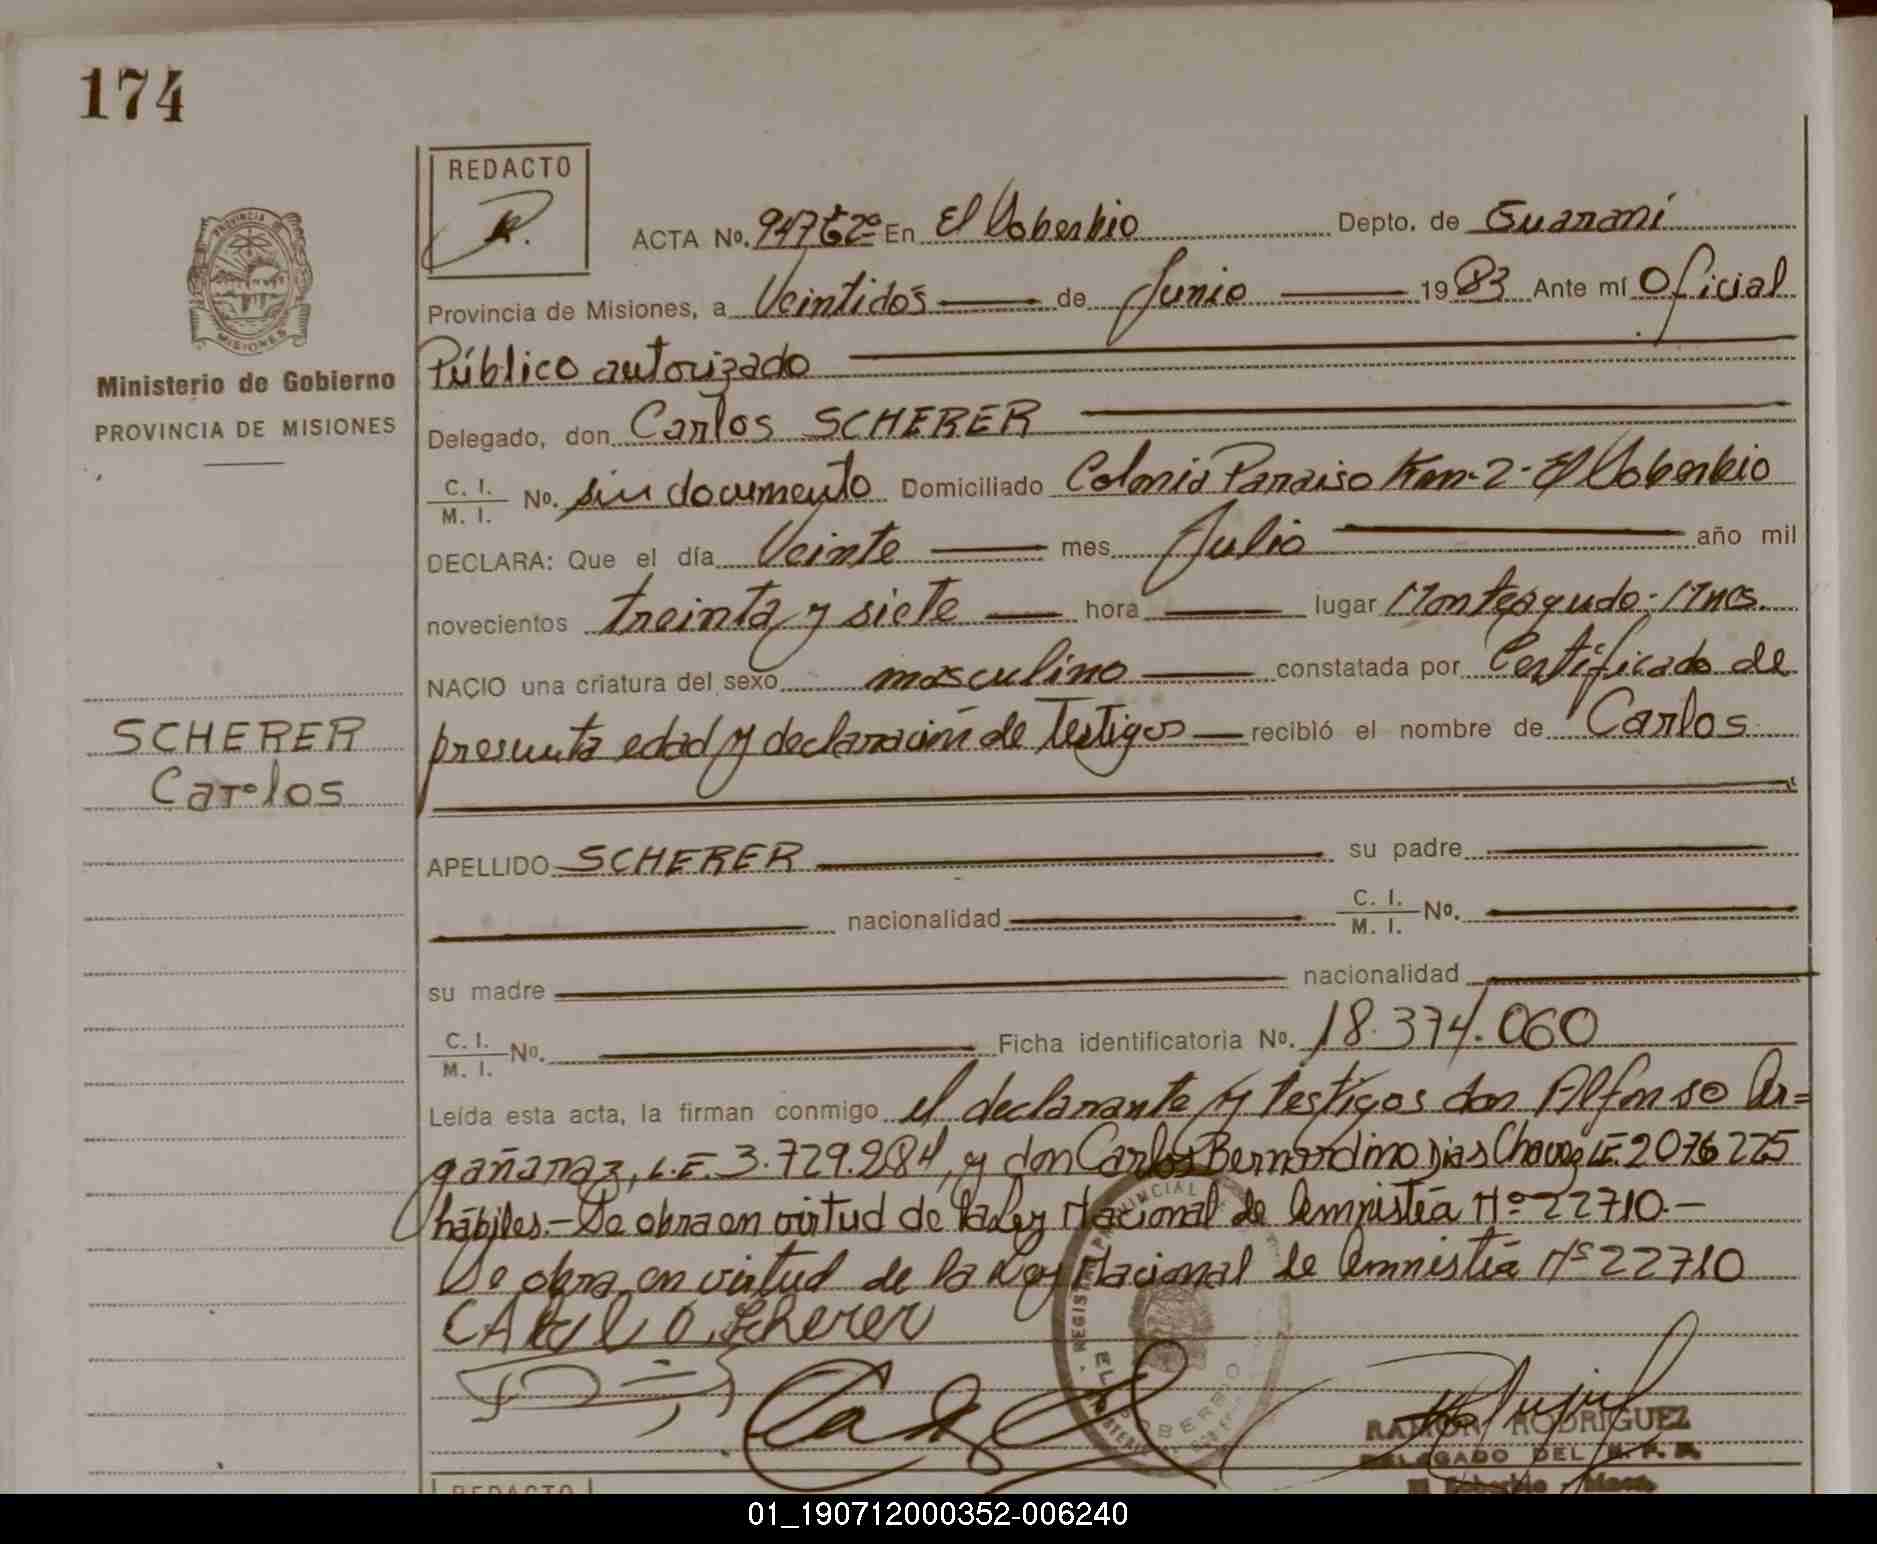 174
REDACTO
R.
PROVINCIA
MISIONES
Ministerio de Gobierno
PROVINCIA DE MISIONES
ACTA No. 947 t 2º En El Soberbio Depto. de Guaraní
Provincia de Misiones, a Veintidós de Junio 1983 Ante mí Oficial
Público autorizado
Delegado, don Carlos SCHERER
C. I.
M. I. No. sin documento Domiciliado Colonia Paraiso Km-2- El Soberbio
DECLARA: Que el día Veinte mes Julio año mil
novecientos treinta y siete hora lugar Monteagudo. Mnes.
NACIO una criatura del sexo masculino constatada por Certificado de
presunta edad y declaración de Testigos recibió el nombre de Carlos
SCHERER
Carlos
APELLIDO SCHERER su padre
nacionalidad C. I.
M. I. No.
su madre nacionalidad
C. I.
M. I. No. Ficha identificatoria No. 18.374.060
Leída esta acta, la firman conmigo el declarante y testigos don Alfonso Ar=
gañaraz, L.E. 3.729.284, y don Carlos Bernardino Dias Chavez LE. 2076225
hábiles.- Se obra en virtud de la Ley Nacional de Amnistía Nº 22710.-
Se obra en virtud de la Ley Nacional de Amnistía Nº 22710
Scherer
REGISTRO PROVINCIAL
EL SOBERBIO
RAMON RODRIGUEZ
DELEGADO DEL R. P. P.
El Soberbio - Mnes.
REDACTO
01_190712000352-006240